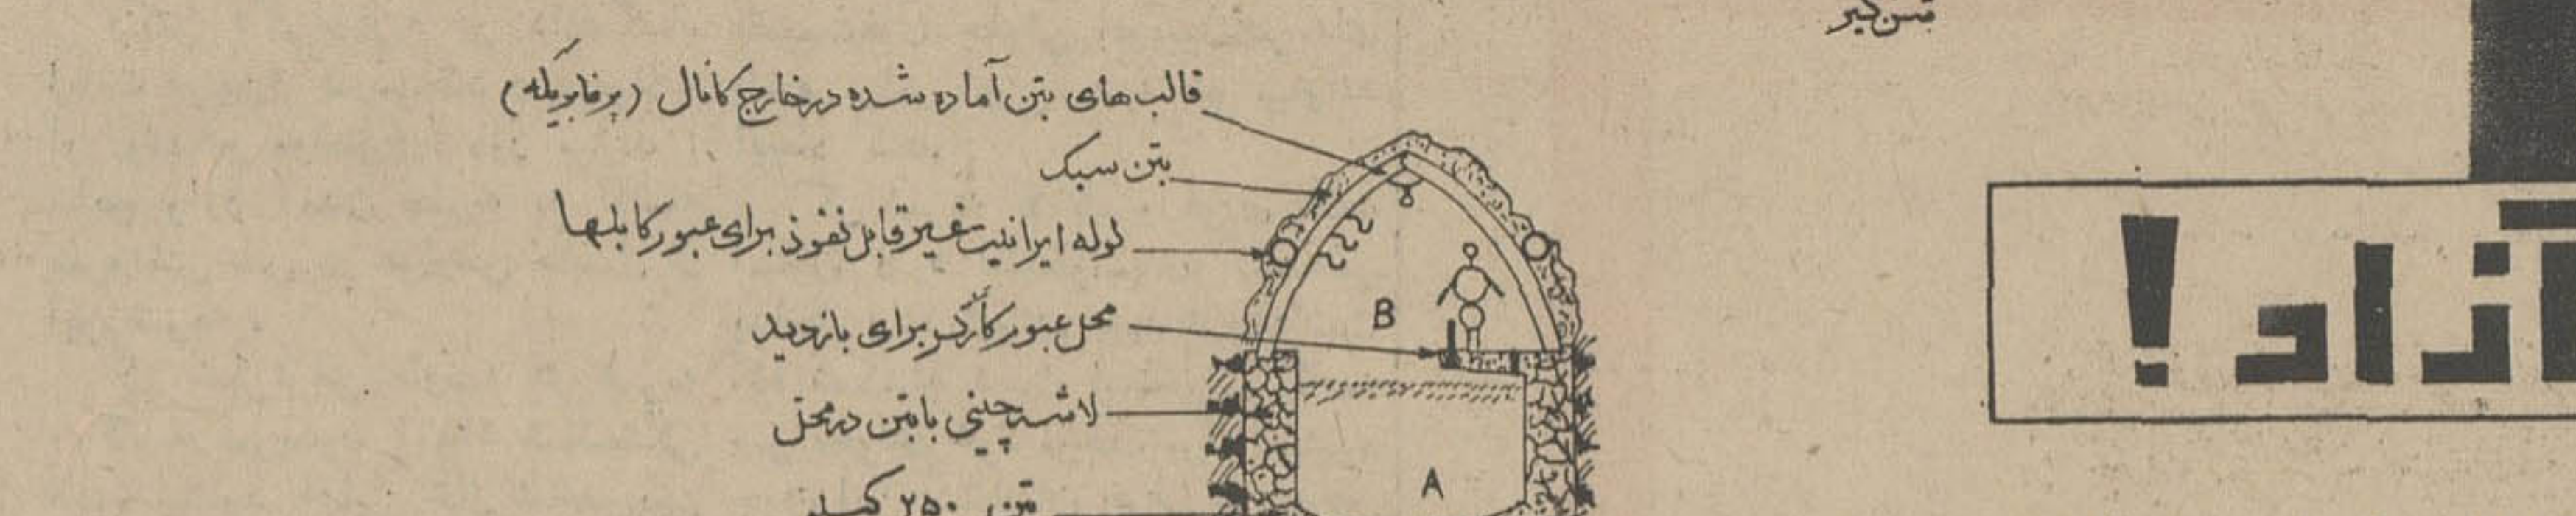 قالب‌های بتن آماده شده در خارج کانال (پرفابریکه)
بتن سبک
لوله ایرانیت غیر قابل نفوذ برای عبور کابلها
محل عبور کارگر برای بازدید
لاشه چینی با بتن در محل
بتن ۲۵۰ کیلو
B
A
آزاد!